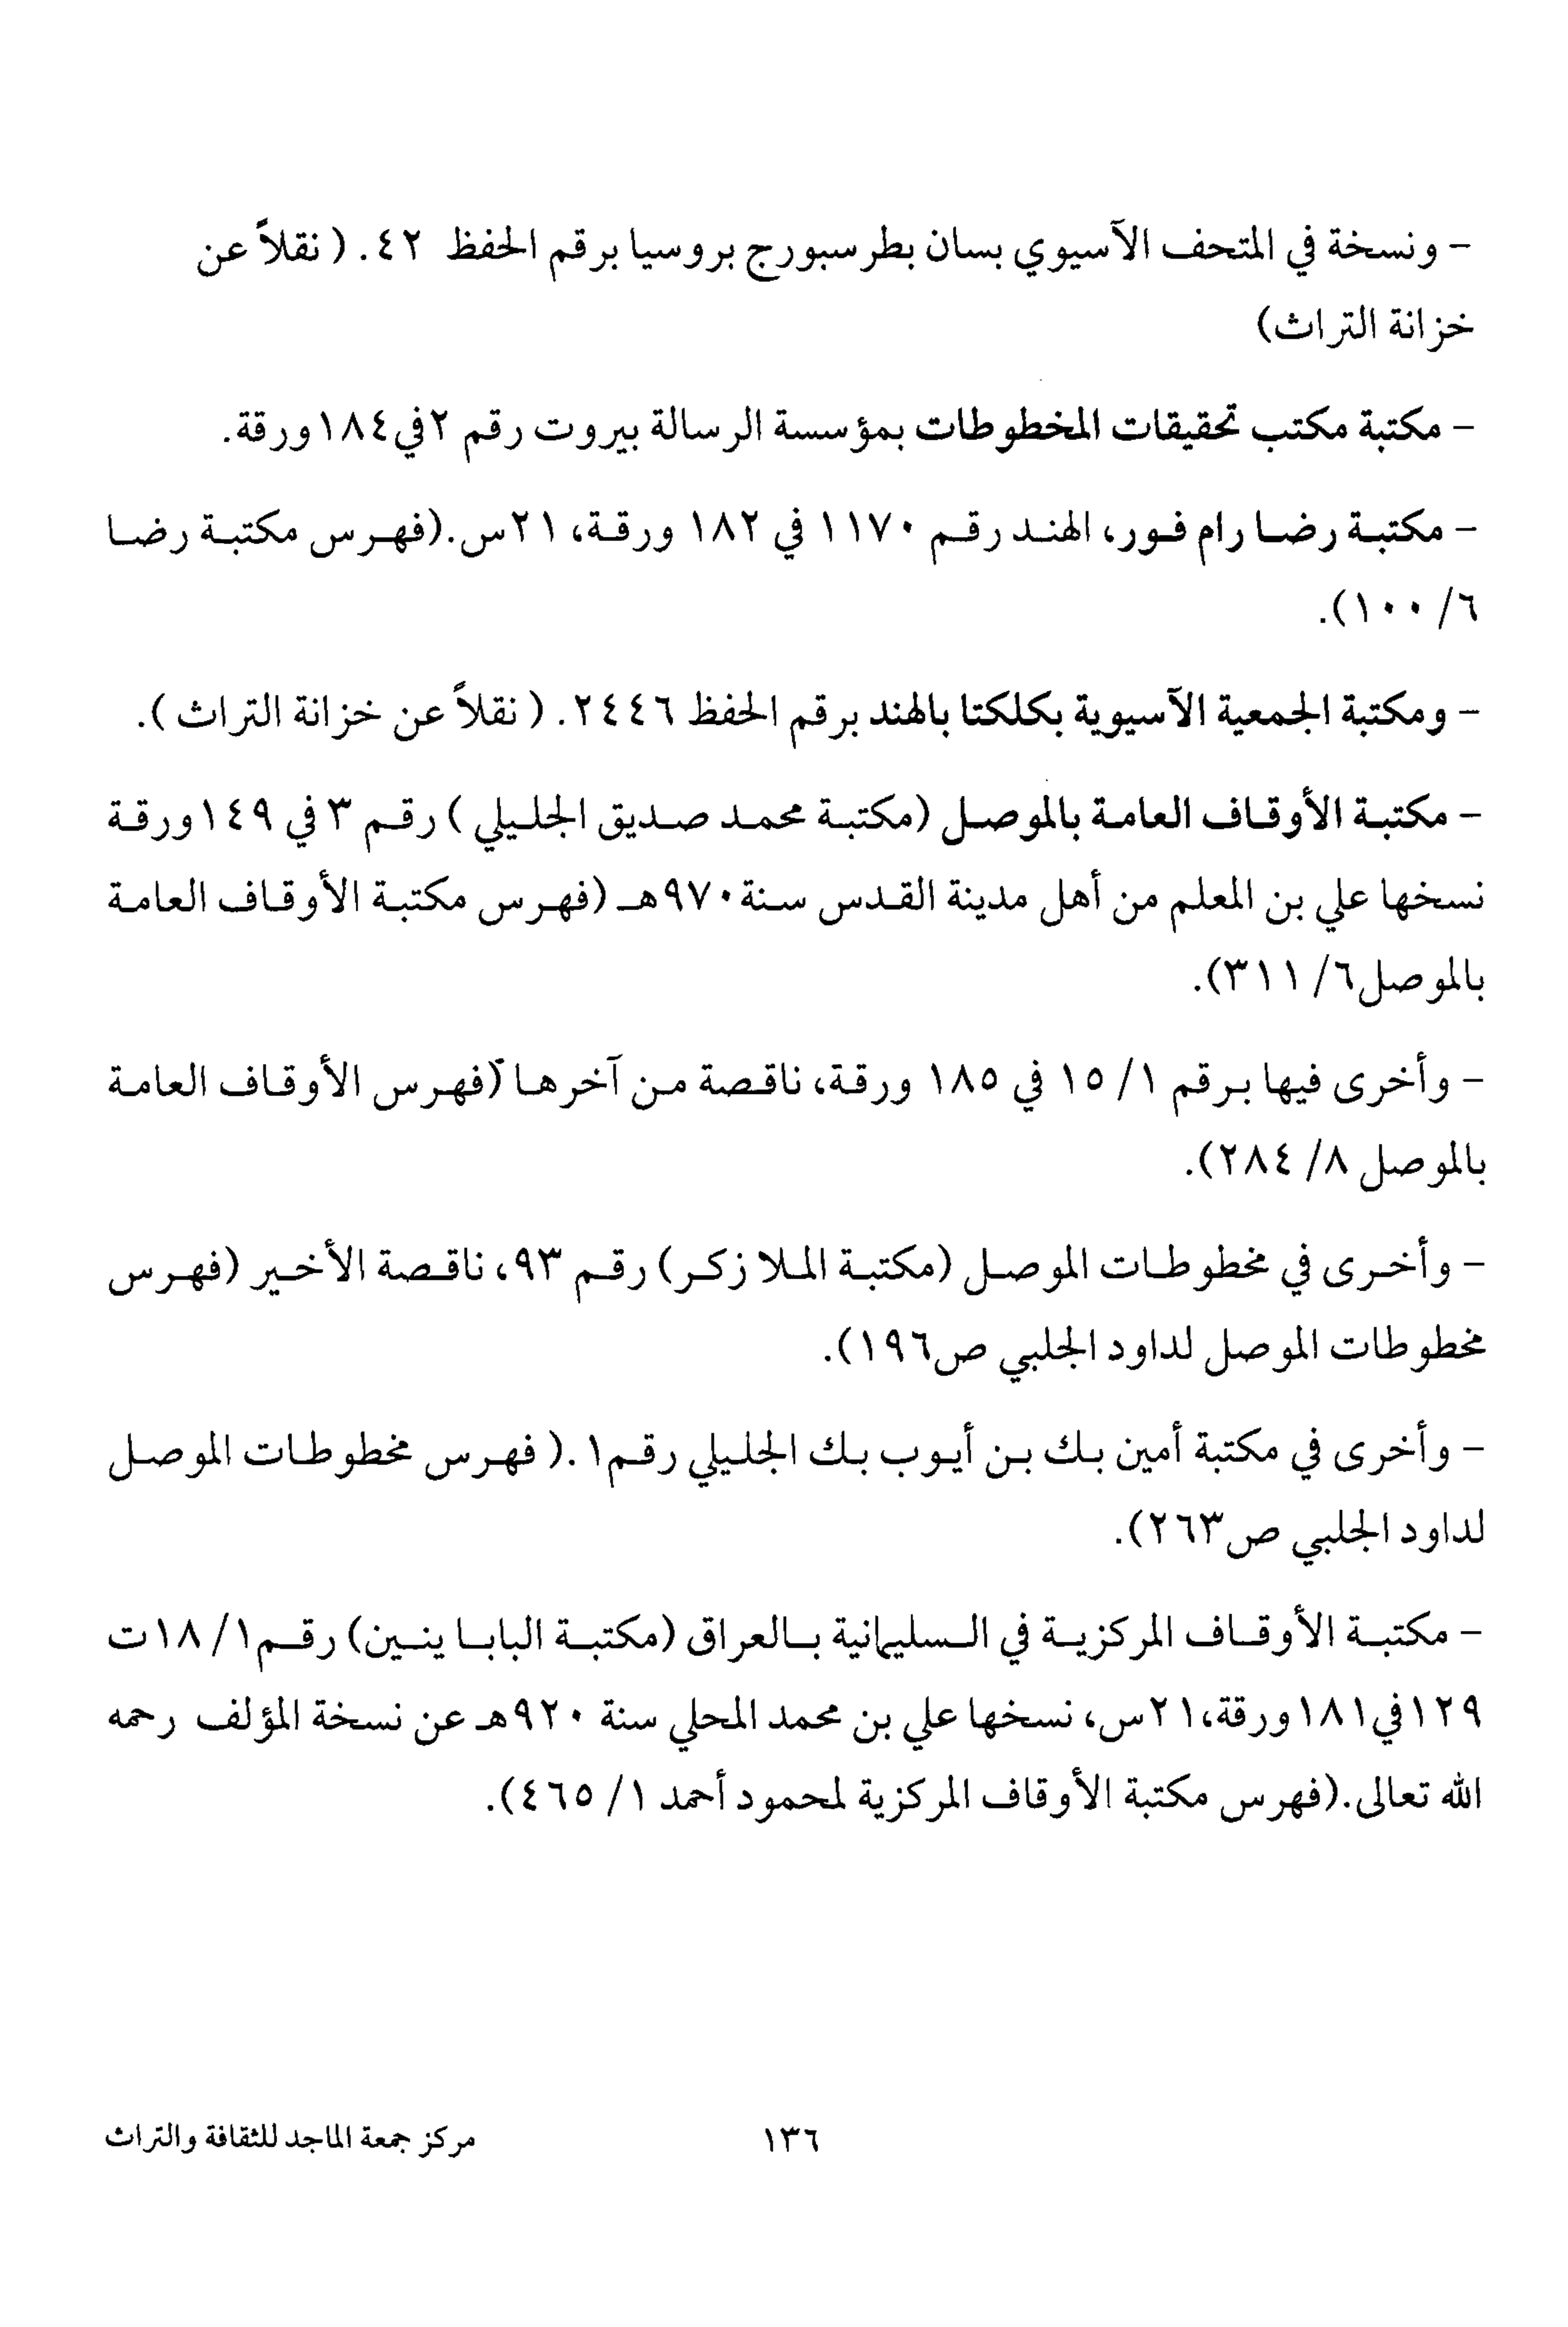 - ونسخة في المتحف الآسيوي بسان بطرسبورج بروسيا برقم الحفظ ٤٢. ( نقلاً عن
خزانة التراث)
- مكتبة مكتب تحقيقات المخطوطات بمؤسسة الرسالة بيروت رقم ٢في١٨٤ورقة.
- مكتبة رضا رام فور، الهند رقم ١١٧٠ في ١٨٢ ورقة، ٢١س.(فهرس مكتبة رضا
٦/ ١٠٠).
- ومكتبة الجمعية الآسيوية بكلكتا بالهند برقم الحفظ ٢٤٤٦. ( نقلاً عن خزانة التراث ).
- مكتبة الأوقاف العامة بالموصل (مكتبة محمد صديق الجليلي ) رقم ٣ في ١٤٩ورقة
نسخها علي بن المعلم من أهل مدينة القدس سنة٩٧٠هـ (فهرس مكتبة الأوقاف العامة
بالموصل٦/ ٣١١).
- وأخرى فيها برقم ١/ ١٥ في ١٨٥ ورقة، ناقصة من آخرها (فهرس الأوقاف العامة
بالموصل ٨/ ٢٨٤).
- وأخرى في مخطوطات الموصل (مكتبة الملا زكر) رقم ٩٣، ناقصة الأخير (فهرس
مخطوطات الموصل لداود الجلبي ص١٩٦).
- وأخرى في مكتبة أمين بك بن أيوب بك الجليلي رقم١ .( فهرس مخطوطات الموصل
لداود الجلبي ص٢٦٣).
- مكتبة الأوقاف المركزية في السليمانية بالعراق (مكتبة البابا ينين) رقم١/ ١٨ت
١٢٩في١٨١ورقة،٢١س، نسخها علي بن محمد المحلي سنة ٩٢٠هـ عن نسخة المؤلف رحمه
الله تعالى.(فهرس مكتبة الأوقاف المركزية لمحمود أحمد ١/ ٤٦٥).
١٣٦
مركز جمعة الماجد للثقافة والتراث